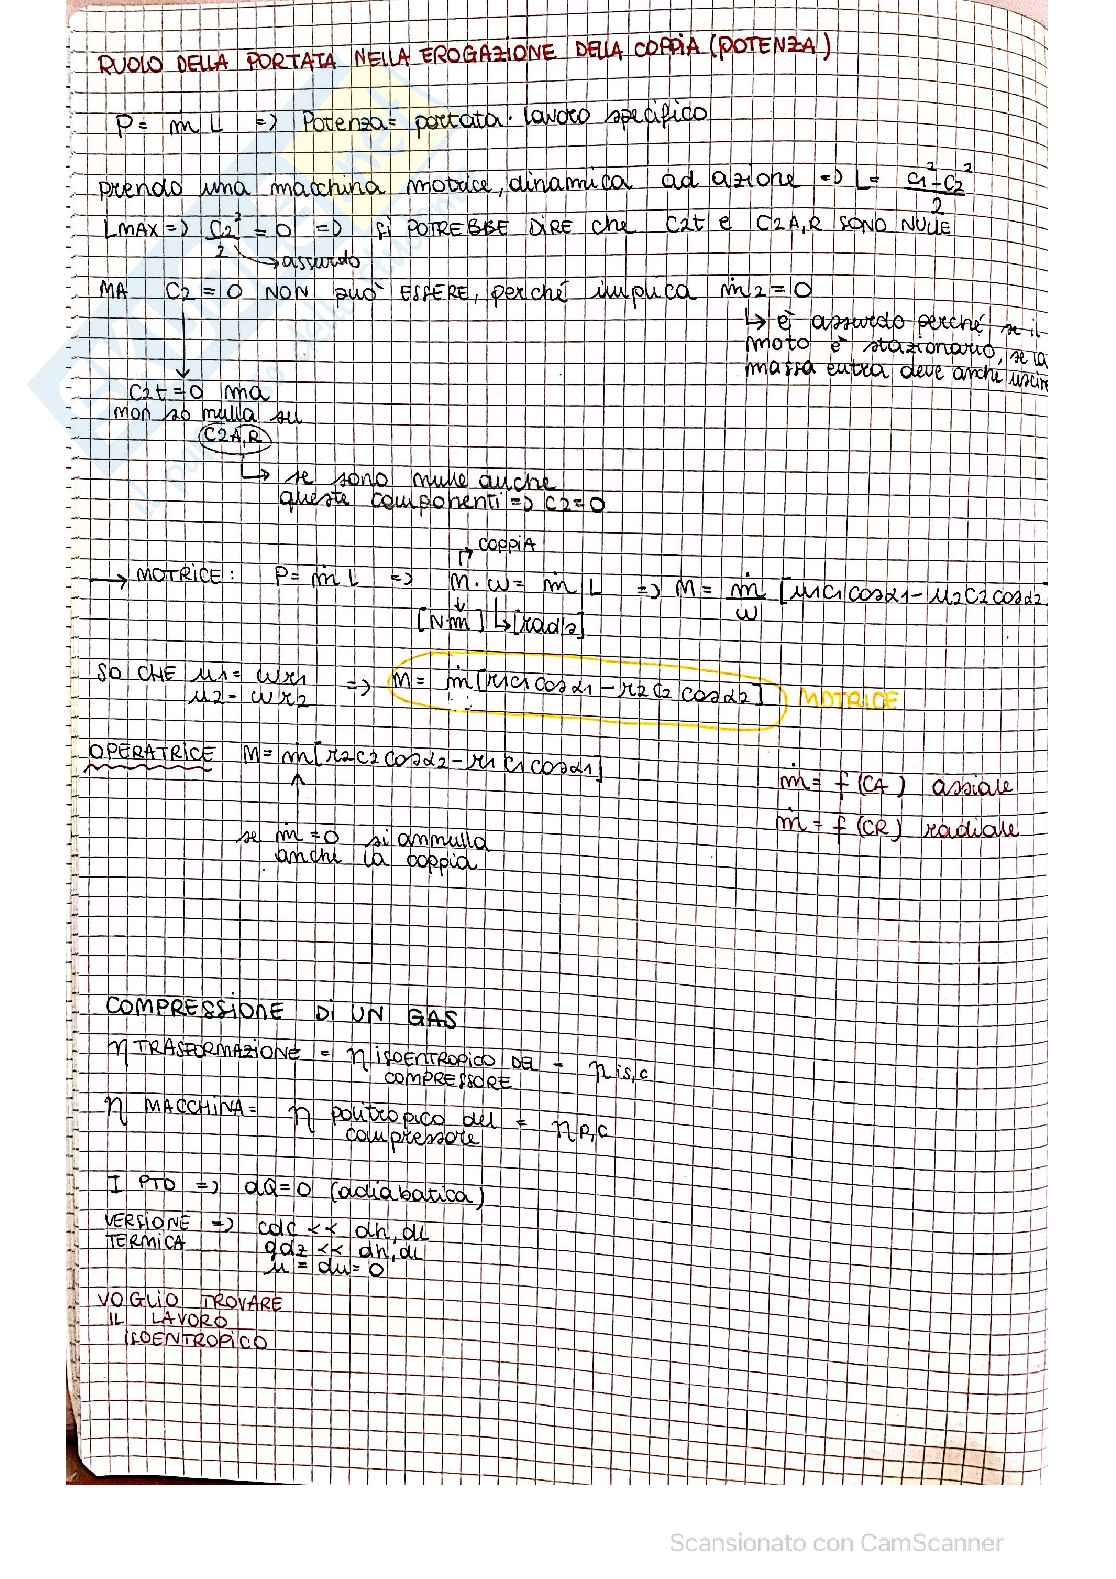 RUOLO DELLA PORTATA NELLA EROGAZIONE DELLA COPPIA (POTENZA)
P = ṁ L => Potenza = portata · lavoro specifico
prendo una macchina motrice, dinamica ad azione => L = (c1² - c2²)/2
LMAX => c2²/2 = 0 => Si POTREBBE DIRE che C2t e C2A,R SONO NULLE
→ assurdo
MA C2 = 0 NON può ESSERE, perché implica ṁ2 = 0
↳ è assurdo perché se il
moto è stazionario, se la
massa entra deve anche uscire
C2t = 0 ma
non so nulla su
C2A,R
↳ se sono nulle anche
queste componenti => C2 = 0
COPPIA
→ MOTRICE: P = ṁ L => M · ω = ṁ L => M = ṁ/ω [u1c1cosα1 - u2c2cosα2
[N·m] ↳ [rad/s]
SO CHE u1 = ωr1
u2 = ωr2 => M = ṁ [r1c1cosα1 - r2c2cosα2] MOTRICE
OPERATRICE M = ṁ [r2c2cosα2 - r1c1cosα1]
ṁ = f(CA) assiale
ṁ = f(CR) radiale
se ṁ = 0 si annulla
anche la coppia
COMPRESSIONE Di UN GAS
η TRASFORMAZIONE = η ISOENTROPICO DEL COMPRESSORE = η is,c
η MACCHINA = η politropico del compressore = η p,c
I PTO => dQ = 0 (adiabatica)
VERSIONE TERMICA => cdc << dh, dL
gdz << dh, dL
u = du = 0
VOGLIO TROVARE
IL LAVORO
ISOENTROPICO
Scansionato con CamScanner